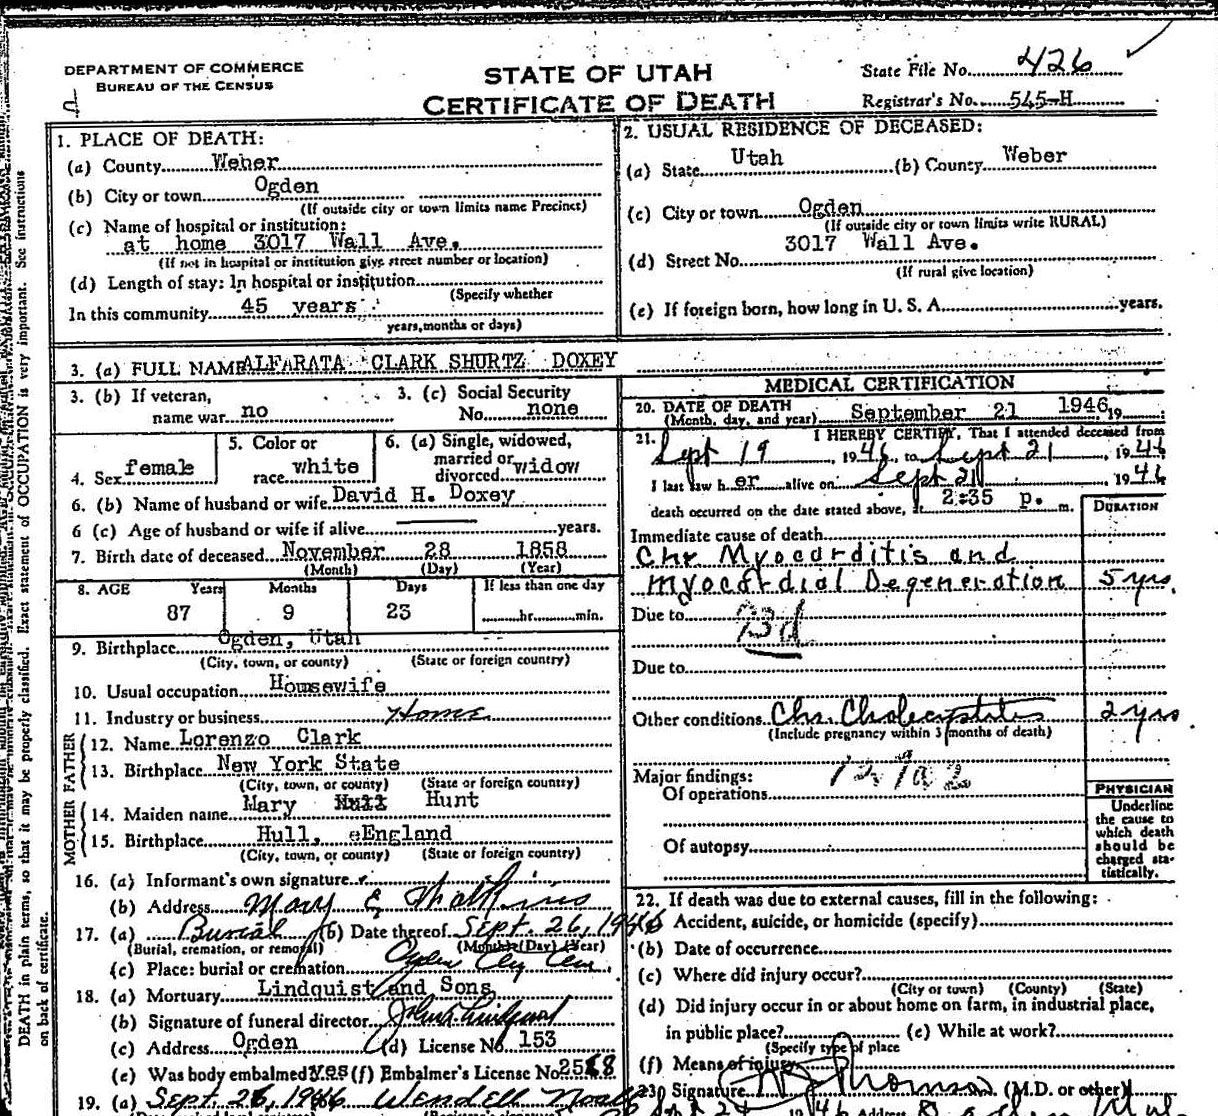 DEPARTMENT OF COMMERCE
BUREAU OF THE CENSUS
STATE OF UTAH
CERTIFICATE OF DEATH
State File No. 426
Registrar's No. 545-H
DEATH in plain terms, so that it may be properly classified. Exact statement of OCCUPATION is very important. See instructions
on back of certificate.
1. PLACE OF DEATH:
(a) County Weber
(b) City or town Ogden
(If outside city or town limits name Precinct)
(c) Name of hospital or institution:
at home 3017 Wall Ave.
(If not in hospital or institution give street number or location)
(d) Length of stay: In hospital or institution
(Specify whether
In this community 45 years
years, months or days)
2. USUAL RESIDENCE OF DECEASED:
(a) State Utah (b) County Weber
(c) City or town Ogden
(If outside city or town limits write RURAL)
3017 Wall Ave.
(d) Street No.
(If rural give location)
(e) If foreign born, how long in U. S. A. years.
3. (a) FULL NAME ALFARATA CLARK SHURTZ DOXEY
3. (b) If veteran, 3. (c) Social Security
name war no No. none
4. Sex female
5. Color or
race white
6. (a) Single, widowed,
married or
divorced widow
6. (b) Name of husband or wife David H. Doxey
6 (c) Age of husband or wife if alive years.
7. Birth date of deceased November 28 1858
(Month) (Day) (Year)
8. AGE Years Months Days If less than one day
87 9 23 hr. min.
9. Birthplace Ogden, Utah
(City, town, or county) (State or foreign country)
10. Usual occupation Housewife
11. Industry or business Home
FATHER
12. Name Lorenzo Clark
13. Birthplace New York State
(City, town, or county) (State or foreign country)
MOTHER
14. Maiden name Mary Hunt
15. Birthplace Hull, eEngland
(City, town, or county) (State or foreign country)
16. (a) Informant's own signature
(b) Address Mary E
17. (a) Burial (b) Date thereof Sept. 26, 1946
(Burial, cremation, or removal) (Month) (Day) (Year)
(c) Place: burial or cremation Ogden City Cem.
18. (a) Mortuary Lindquist and Sons
(b) Signature of funeral director
(c) Address Ogden (d) License No. 153
(e) Was body embalmed? Yes (f) Embalmer's License No.
19. (a) Sept. 26, 1946 Wendell
MEDICAL CERTIFICATION
20. DATE OF DEATH
(Month, day, and year) September 21 1946, 19
21. I HEREBY CERTIFY, That I attended deceased from
Sept 19, 1946, to Sept 21, 1946
I last saw h er alive on Sept 21 1946
death occurred on the date stated above, at 2:35 p. m.
DURATION
Immediate cause of death
Chr Myocarditis and
Myocardial Degeneration 5 yrs.
Due to 93d
Due to
Other conditions Chr. Cholecystitis 2 yrs
(Include pregnancy within 3 months of death)
Major findings:
Of operations
Of autopsy
PHYSICIAN
Underline
the cause to
which death
should be
charged sta-
tistically.
22. If death was due to external causes, fill in the following:
Accident, suicide, or homicide (specify)
(b) Date of occurrence
(c) Where did injury occur?
(City or town) (County) (State)
(d) Did injury occur in or about home on farm, in industrial place,
in public place? (e) While at work?
(Specify type of place
(f) Means of injury
23. Signature Thomson (M.D. or other)
1946 Address